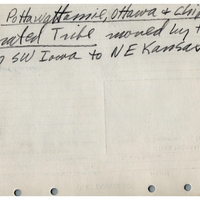 Pottawattamie, Ottawa & Chip
nated Tribe moved by t
SW Iowa to NE Kansas